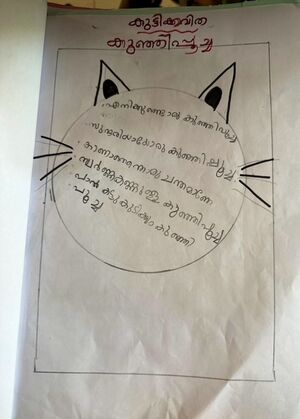 കുട്ടിക്കവിത
കുഞ്ഞിപ്പൂച്ച
എനിക്കുണ്ടൊരു കുഞ്ഞിപൂച്ച
സുന്ദരിയാമൊരു കുഞ്ഞിപ്പൂച്ച
കാണാനെന്തൊരു ചന്തമാണേ
സ്വർണ്ണ കുഞ്ഞിപൂച്ച
പാൽ കട്ടു കുടിക്കും കുഞ്ഞി
പൂച്ച